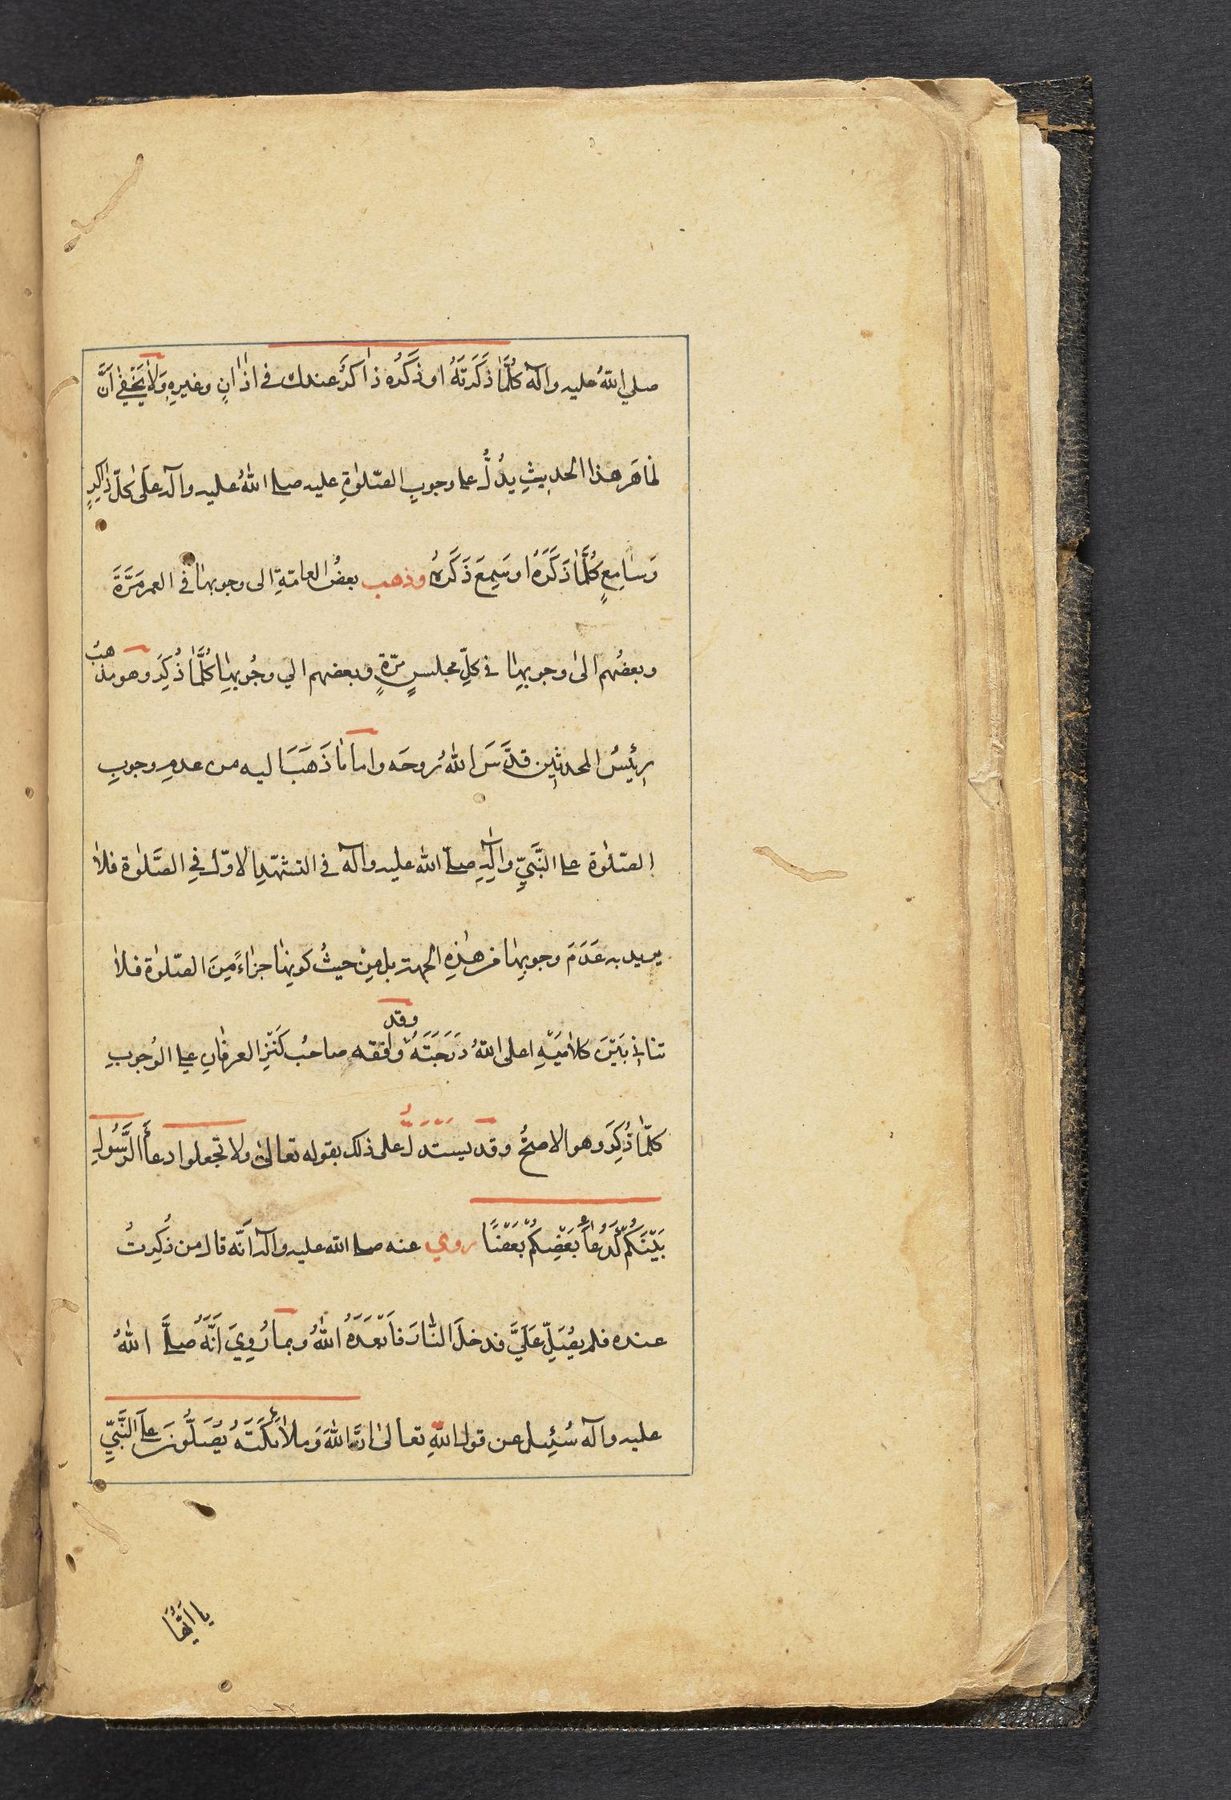 صلي اللهُ عليه وآله كُلَّمٰا ذَكَرتَهُ او ذَكَرُه ذٰاكرٌ عندك في اذٰانٍ وغيرِهِ وَلٰا يَخْفٰي اَنَّ
ظاهَرِ هذا الحديثِ يدُلُّ علي وجوبِ الصّلوٰةِ عليه صلي اللهُ عليه وآله عَلٰى كلّ ذٰاكِرٍ
وَسٰامِعٍ كُلَّمٰا ذَكَرَهُ او سَمِعَ ذَكَرهُ وذهب بعضُ العامّةِ الى وجوبهٰا في العمر مَرَّةَ
وبعضُهم الىٰ وجوبِهٰا في كلِّ مجلسٍ مرّةٍ وبعضهم الي وجُوبهٰا كُلَّمٰا ذُكِرَ وهو مذهبُ
رئيسُ المحدثين قدَّسَ اللهُ رُوحَه واما مٰا ذَهَبَ اليه من عدمِ وجوبِ
الصّلوٰة علي النَّبيِّ وآلِهِ صلي الله عليه وآله في التشهّدِ الاوّل في الصَّلوٰة فلاٰ
يريد به عَدَمَ وجوبِهٰا من هٰذِهِ الجهة بل مِنْ حيثُ كونِهٰا جزْاءً مِنَ الصّلوٰة فلاٰ
تنافي بَيْنَ كلاٰمَيْهِ اعلى اللهُ دَرَجَتَهُ وقد وافقه صاحبُ كَنْزِ العرفانِ علي الوُجوبِ
كلّمٰا ذُكِرَ وهو الاصحُّ وقد يستَدَلُّ على ذلك بقوله تعالىٰ ولا تجعلوا دعاۤءَ الرَّسُولِ
بَيْنَكُمْ كَدُعٰاۤءِ بَعْضِكُمْ بَعْضًا روي عنه صلي الله عليه وآله اَنّه قال من ذُكِرتُ
عنده فلم يصُلِّ عَلَيَّ فدخلَ النّٰارَ فاَبْعَدَهُ اللهُ وبما رُوِيَ اَنَّهُ صلَّي اللهُ
عليه وآله سُئِل عن قول اللهِ تعالىٰ انّ اللهَ وَملاٰئِكَتَهُ يُصَلُّونَ علي النَّبِيِّ
يا ايّهٰا